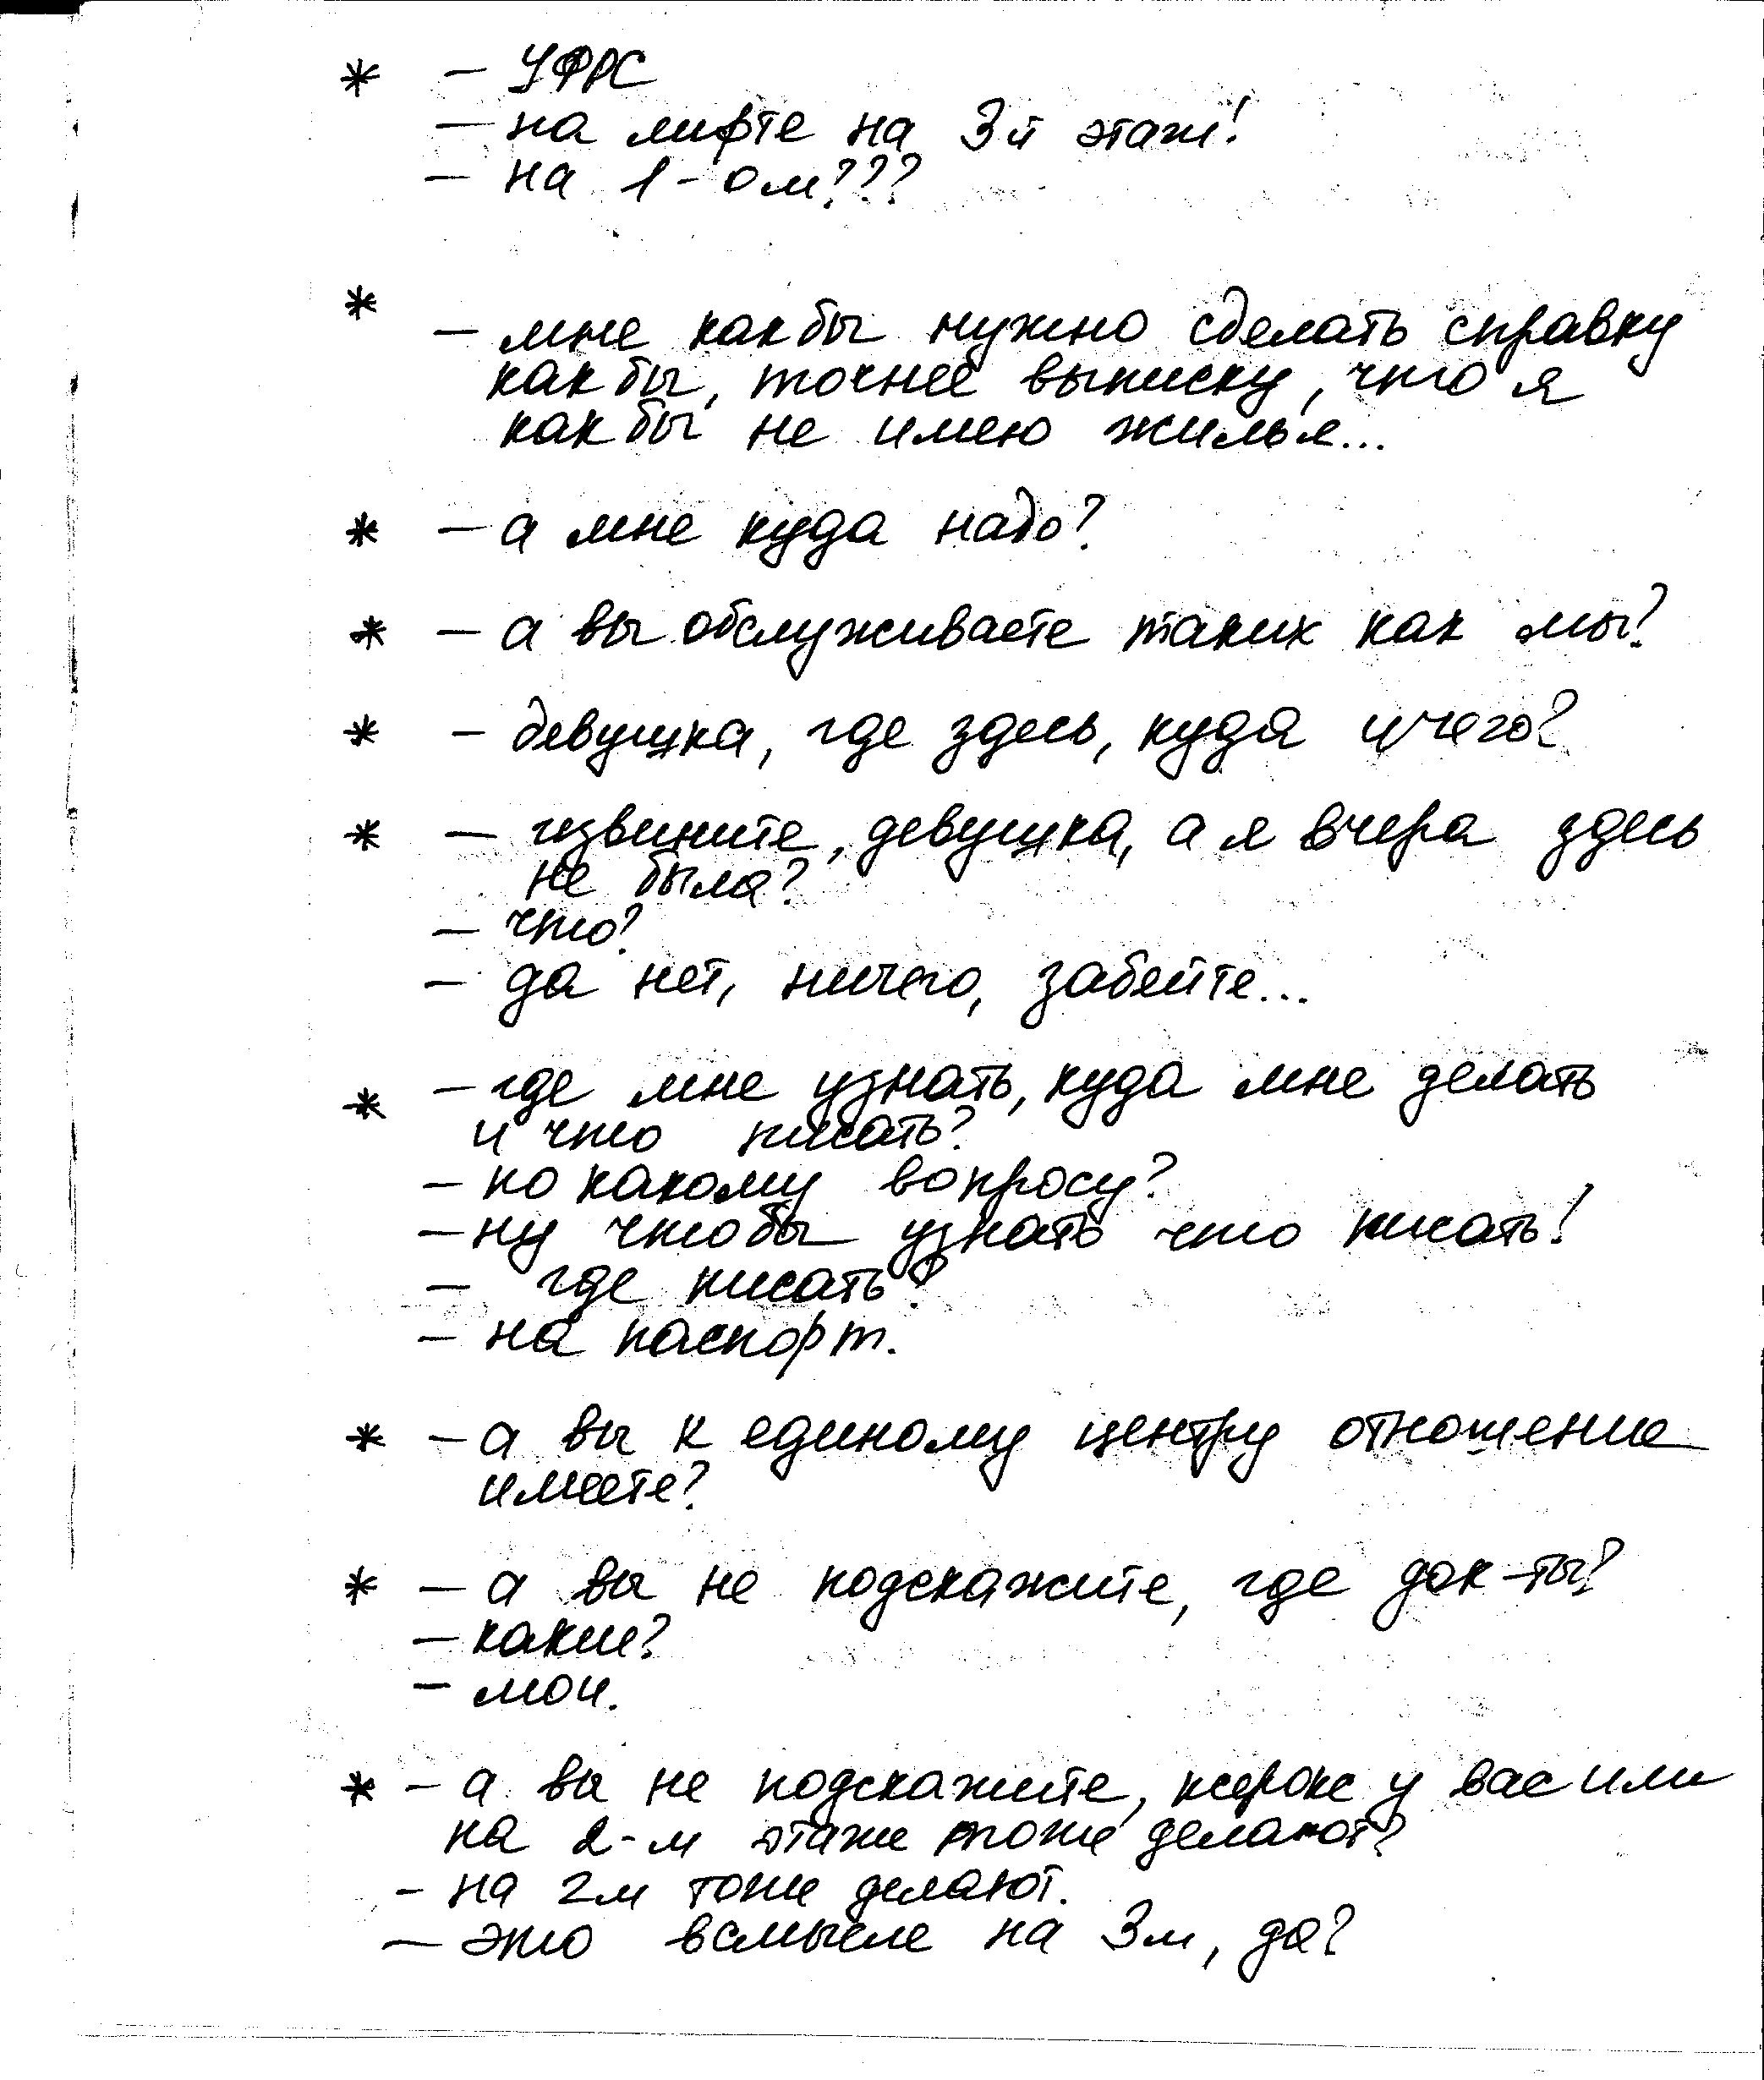 * — УФРС
— на лифте на 3й этаж!
— на 1-ом???
* — мне как бы нужно сделать справку
как бы, точнее выписку, что я
как бы не имею жилья...
* — а мне куда надо?
* — а вы обслуживаете таких как мы?
* — девушка, где здесь, куда и чего?
* — извините, девушка, а я вчера здесь
не была?
— что?
— да нет, ничего, забейте...
* — где мне узнать, куда мне делать
и что писать?
— по какому вопросу?
— ну чтобы узнать что писать!
— где писать?
— на паспорт.
* — а вы к единому центру отношение
имеете?
* — а вы не подскажите, где док-ты?
— какие?
— мои.
* — а вы не подскажите, ксерокс у вас или
на 2-м этаже тоже делают?
— на 2м тоже делают.
— это всмысле на 3м, да?